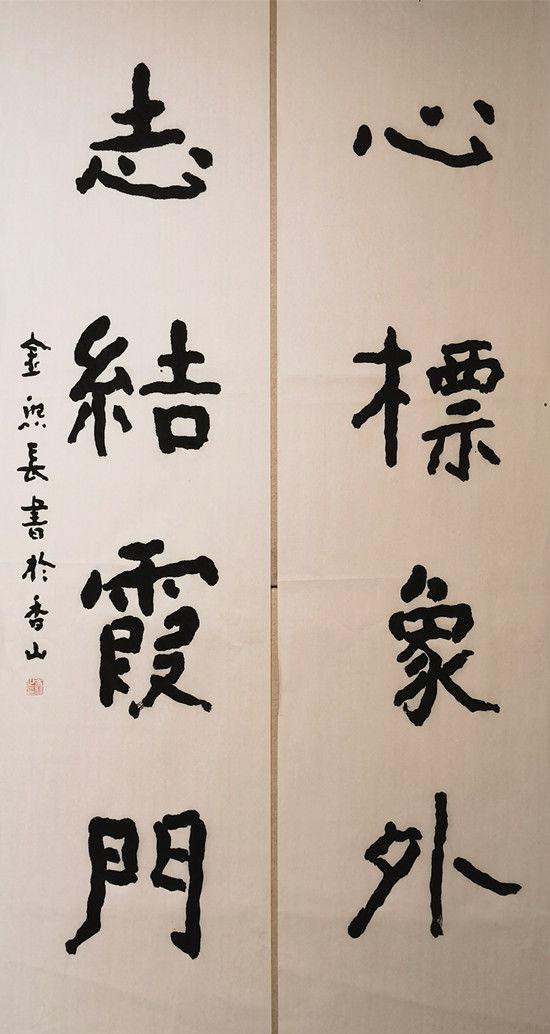 心標象外
志結霞門
金煕長書於香山